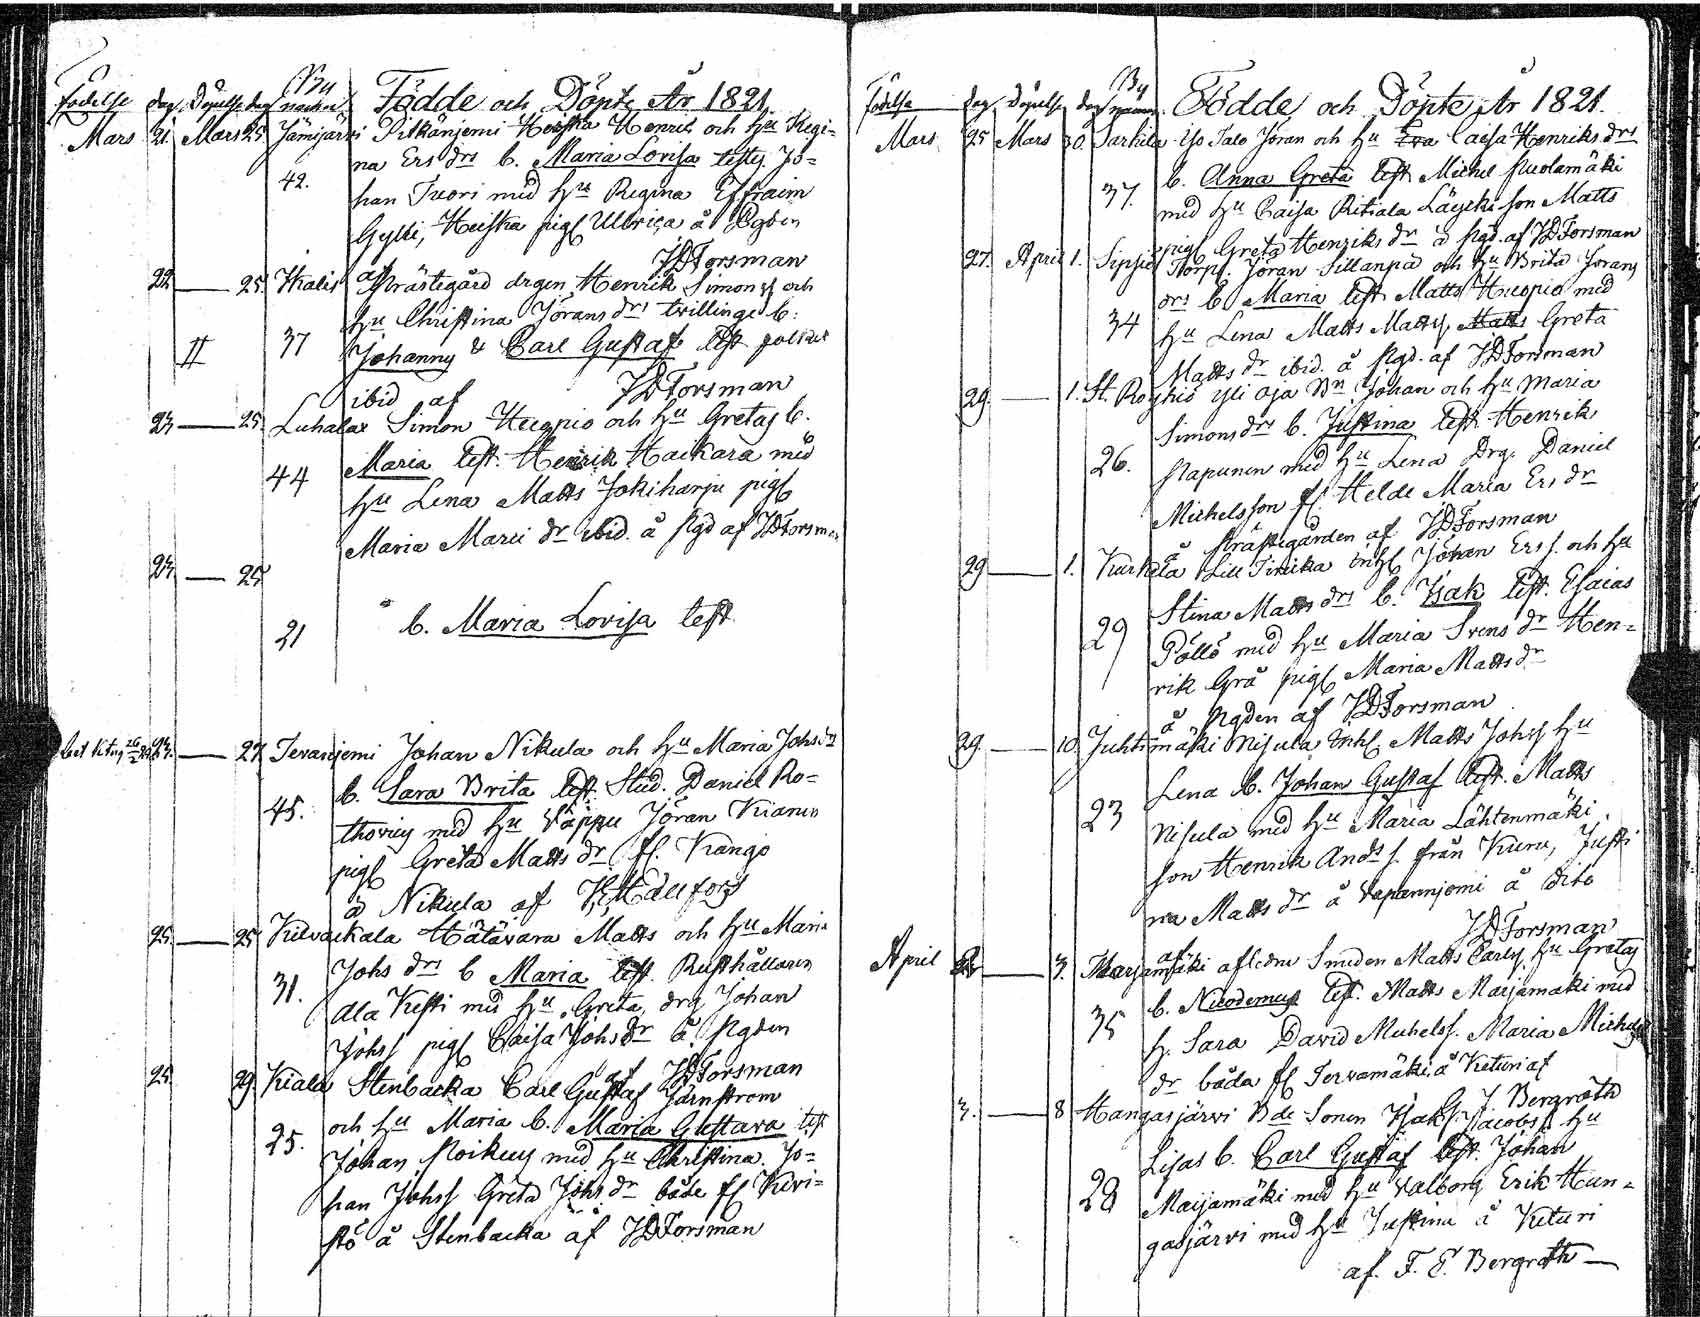 Födde och Döpte År 1821.
födelse dag Döpelse dag By namn
Mars 21. Mars 25 Jämijärvi Pitkänjemi Heiska Henric och hu Regi=
na Ers drs b. Maria Lovisa test. Jo=
42. han Tuori med hu Regina Efraim
Gylli, Heiska pig Ulbrica å Pgden
af JDForsman
22 — 25. Kalis Prästegård drgen Henrik Simons och
hu Christina Jörans drs tvillinge b:
II 37 Johannes & Carl Gustaf test
ibid af JDForsman
23 — 25. Luhalax Simon Huopio och hu Gretas b.
44 Maria test. Henrik Hackara med
hu Lena Matts Jokiharju pig
Maria Marci dr ibid. å Pgd af JDForsman
23 — 25
21 b. Maria Lovisa test
23. — 27. Tevanjemi Johan Nikula och hu Maria Johs drs
b. Sara Brita test. Stud. Daniel Ro=
45. thovius med hu Jöran
pig Greta Matts dr fr. Kango
å Nikula af
25. — 25 Kilvakkala Hätävara Matts och hu Maria
Johs drs b Maria test. Rusthållaren
31. Ala Kesti med hu Greta, drg Johan
Johss pig Caisa Johs dr å Pgden
af JDForsman
25 29. Kiala Stenbacka Carl Gustaf Järnström
och hu Maria b. Maria Gustava test
25. Johan Roikus med hu Christina. Jo=
han Johss Greta Johs dr både fr Kivi=
stö å Stenbacka af JDForsman
Födde och Döpte År 1821.
födelse dag Döpelse dag By namn
Mars 25 Mars 30. Sarkila Yso Talo Jöran och hu Eva Caisa Henriks drs
b. Anna Greta test Michel Puolamäki
37. med hu Caisa Ritiala son Matts
pig Greta Henriks dr å Pgd. af JDForsman
27. April 1. Sipsiö Torpr. Jöran Sillanpää och hu Brita Jörans
drs b. Maria test Matts Huopio med
34 hu Lena Matts Matts, Matts Greta
Matts dr ibid. å Pgd. af JDForsman
29. — 1. St. Röyhiö Yli Oja Bn. Johan och hu Maria
Simons drs b. Justina test. Henrik
26. Papunen med hu Lena Drg. Daniel
Michelsson fr. Helde Maria Ers dr
å Prästegården af JDForsman
29 — 1. Kurkela Lill Tiuika inhs Johan Erss. och hu
Stina Matts drs b. Isak test. Esaias
29 Pöllö med hu Maria Svens dr Hen=
rik Grå pig Maria Matts dr
å Pgden af JDForsman
29. — 10. Juhtimäki Nisula inhs Matts Johss hu
Lena b. Johan Gustaf test. Matts
23 Nisula med hu Maria Lähtenmäki
son Henrik Ands s. från Kuru, Justi
na Matts dr å Vapannjemi å dito
af JDForsman
April — 3. Marjamäki afledne Smeden Matts Carls hu Gretas
b. Nicodemus test. Matts Marjamäki med
35 h. Sara David Michelss. Maria Michels
dr båda fr Tervamäki å Keturi af
G J Bergroth
3. — 8 Hangasjärvi Bde Sonen Isak Jacobss. hu
Lisas b. Carl Gustaf test. Johan
28 Marjamäki med hu Valborg Erik Han=
gasjärvi med hu Justina å Keturi
af. F. E. Bergroth —